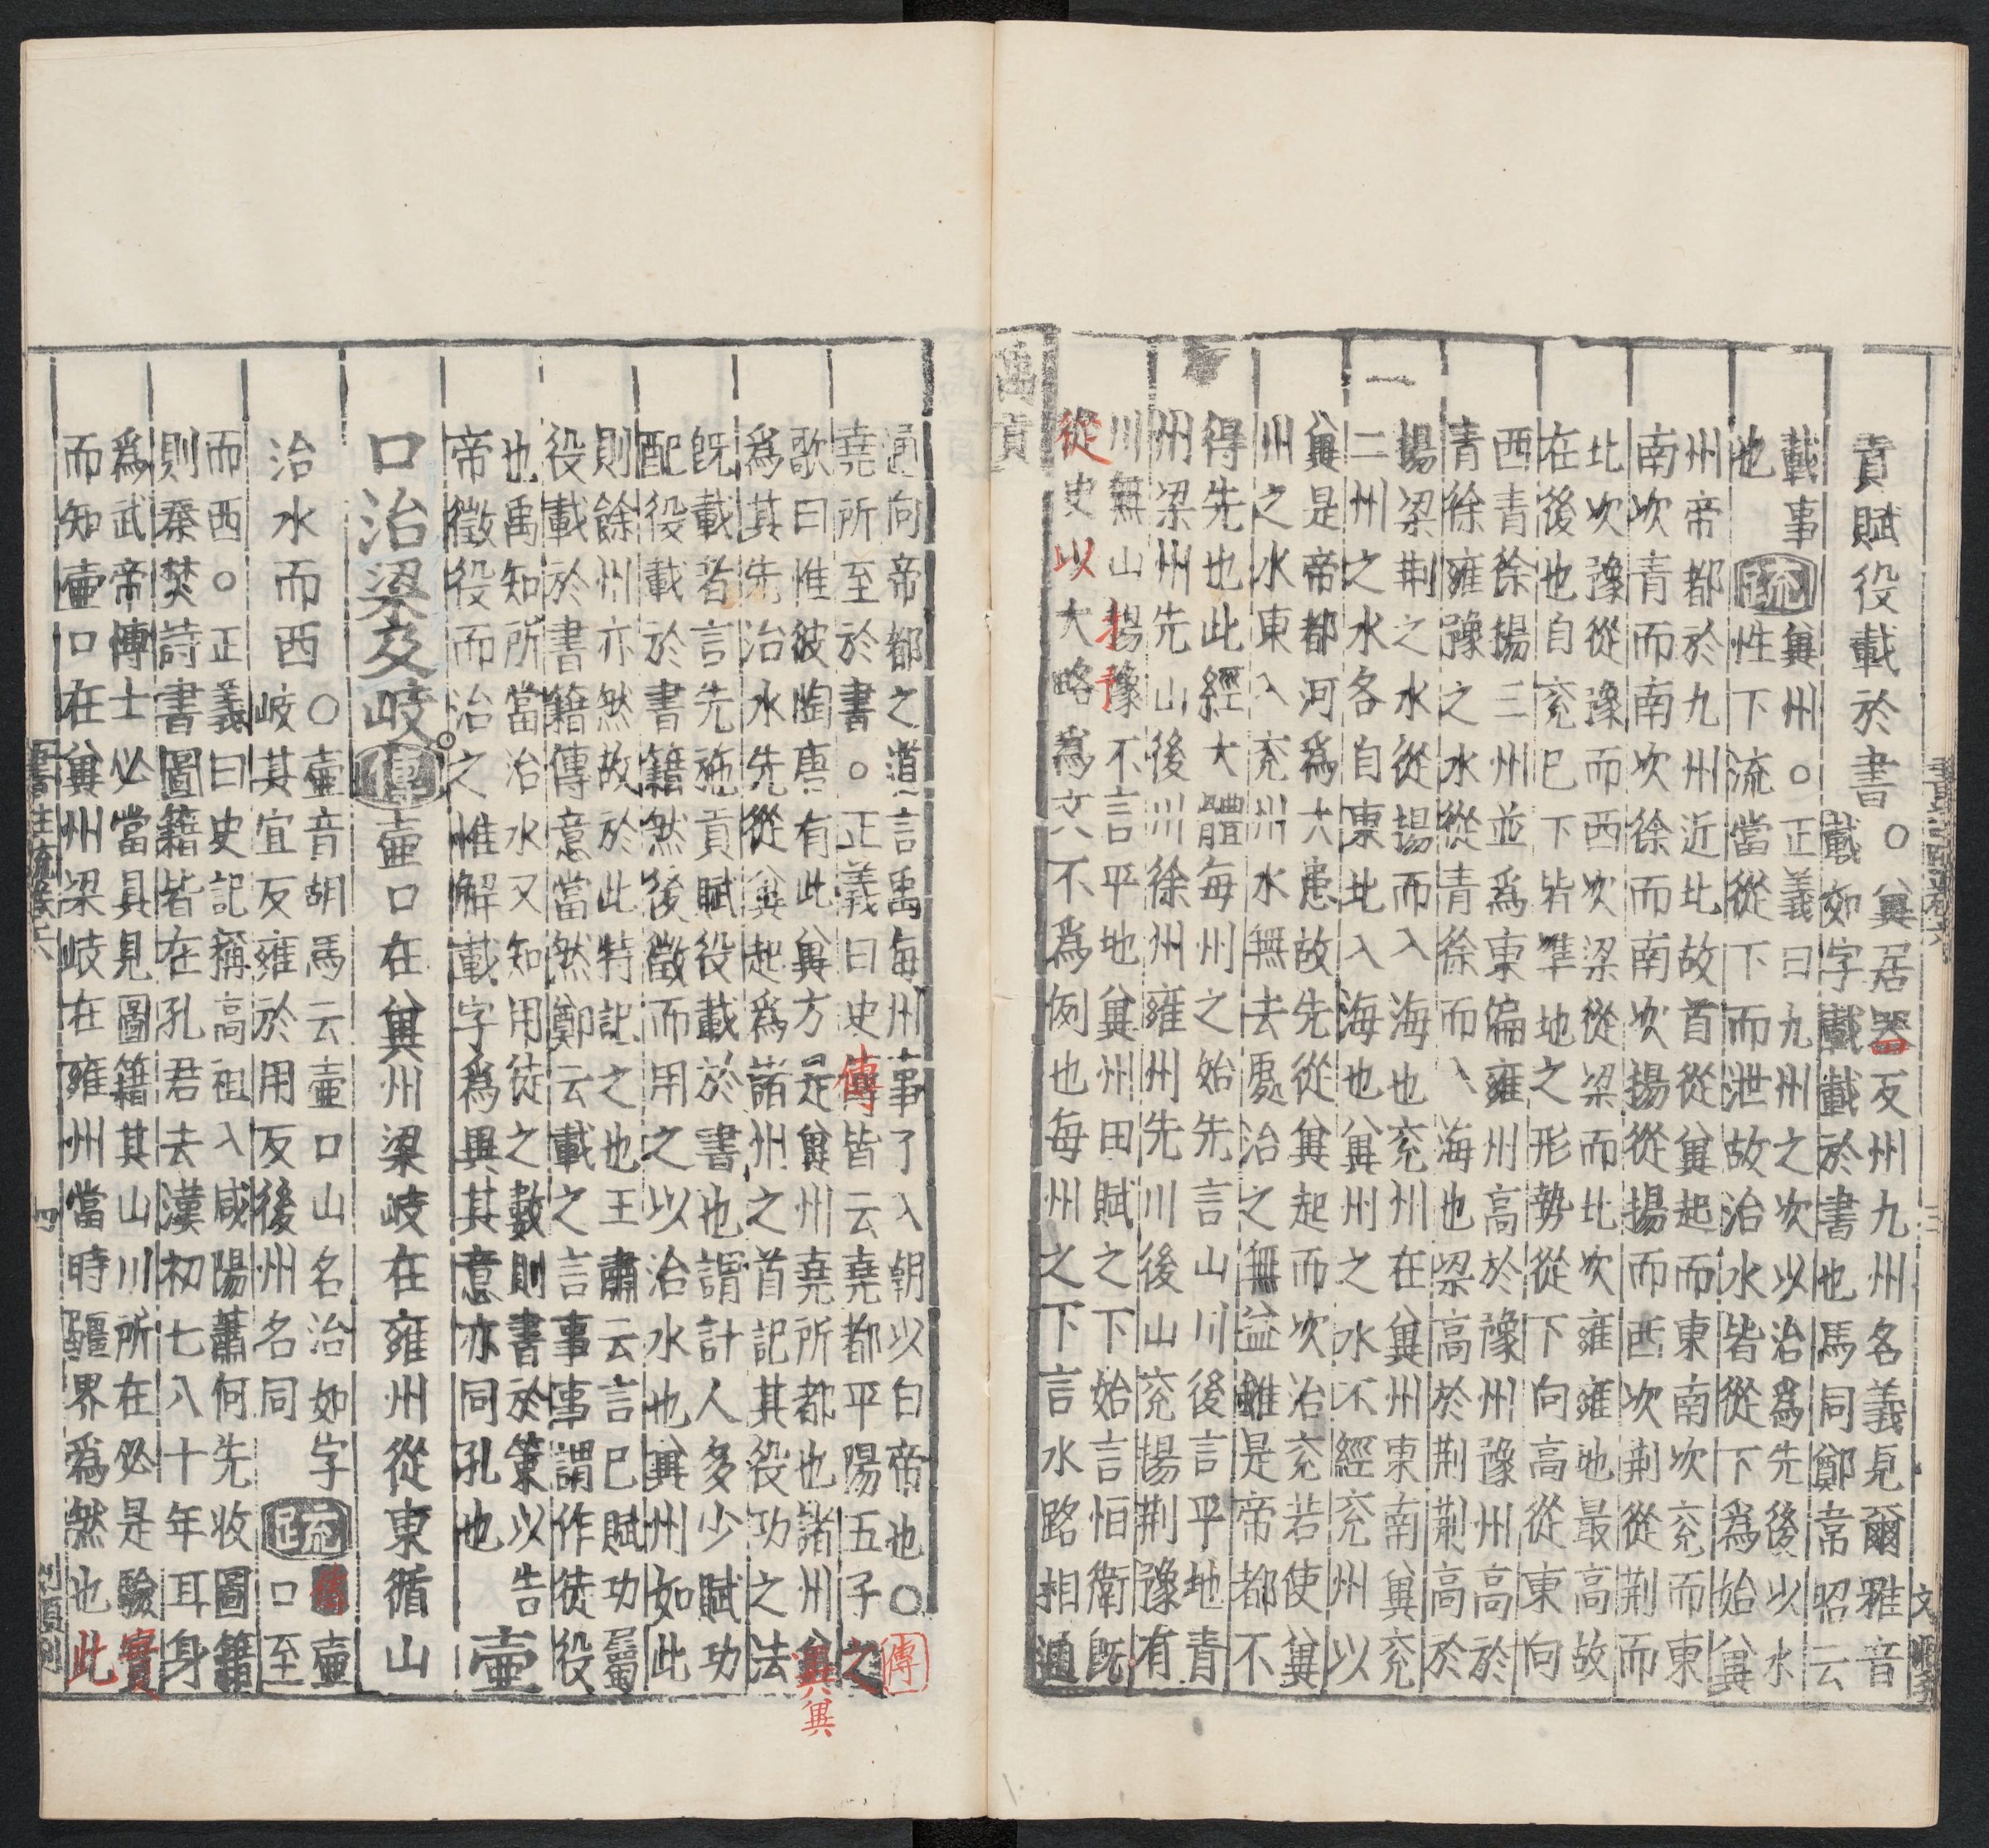 貢賦役載於書○冀居器反州九州名義見爾雅音
載如字載載於書也馬同鄭韋昭云
載事
也
疏
冀州○正義曰九州之次以治爲先後以水
性下流當從下而泄故治水皆從下爲始冀
州帝都於九州近北故首從冀起而東南次兖而東
南次青而南次徐而南次揚從揚而西次荆從荆而
北次豫從豫而西次梁從梁而北次雍雍地最高故
在後也自兖已下皆準地之形勢從下向高從東向
西青徐揚三州並爲東偏雍州高於豫州豫州高於
青徐雍豫之水從青徐而入海也梁高於荆荆高於
揚梁荆之水從揚而入海也兖州在冀州東南冀兖
二州之水各自東北入海也冀州之水不經兖州以
冀是帝都河爲大患故先從冀起而次治兖若使冀
州之水東入兖州水無去處治之無益雖是帝都不
得先也此經大體每州之始先言山川後言平地青
州梁州先山後川徐州雍州先川後山兖揚荆豫有
川無山揚豫不言平地冀州田賦之下始言恒衛既
從史以大略爲文不爲例也每州之下言水路相通
禹貢
通向帝都之道言禹每州事了入朝以白帝也○傳
堯所至於書○正義曰史傳皆云堯都平陽五子之
歌曰惟彼陶唐有此冀方是冀州堯所都也諸州冀
冀
爲其先治水先從冀起爲諸州之首記其役功之法
既載者言先施貢賦役載於書也謂計人多少賦功
配役載於書籍然後徵而用之以治水也冀州如此
則餘州亦然故於此特記之也王肅云言已賦功屬
役載於書籍傳意當然鄭云載之言事事謂作徒役
也禹知所當治水又知用徒之數則書於策以告
帝徵役而治之惟解載字爲異其意亦同孔也
壷
口治梁及岐
傳
壷口在冀州梁岐在雍州從東循山
治水而西
○壷音胡馬云壷口山名治如字
岐其宜反雍於用反後州名同
疏
傳壷
口至
而西○正義曰史記稱高祖入咸陽蕭何先收圖籍
則秦焚詩書圖籍皆在孔君去漢初七八十年耳身
爲武帝博士必當具見圖籍其山川所在必是驗實
而知壷口在冀州梁岐在雍州當時疆界爲然也此
四